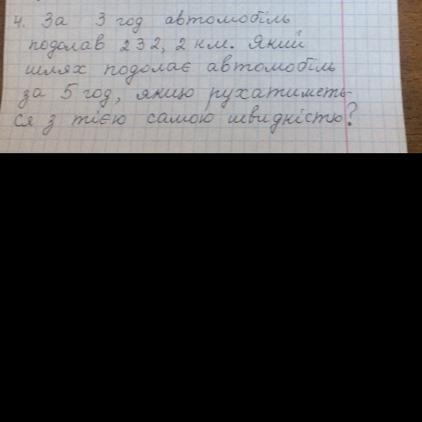 4. За 3 год автомобіль
подолав 232, 2 км. Який
шлях подолає автомобіль
за 5 год, якщо рухатиметь-
ся з тією самою швидністю?